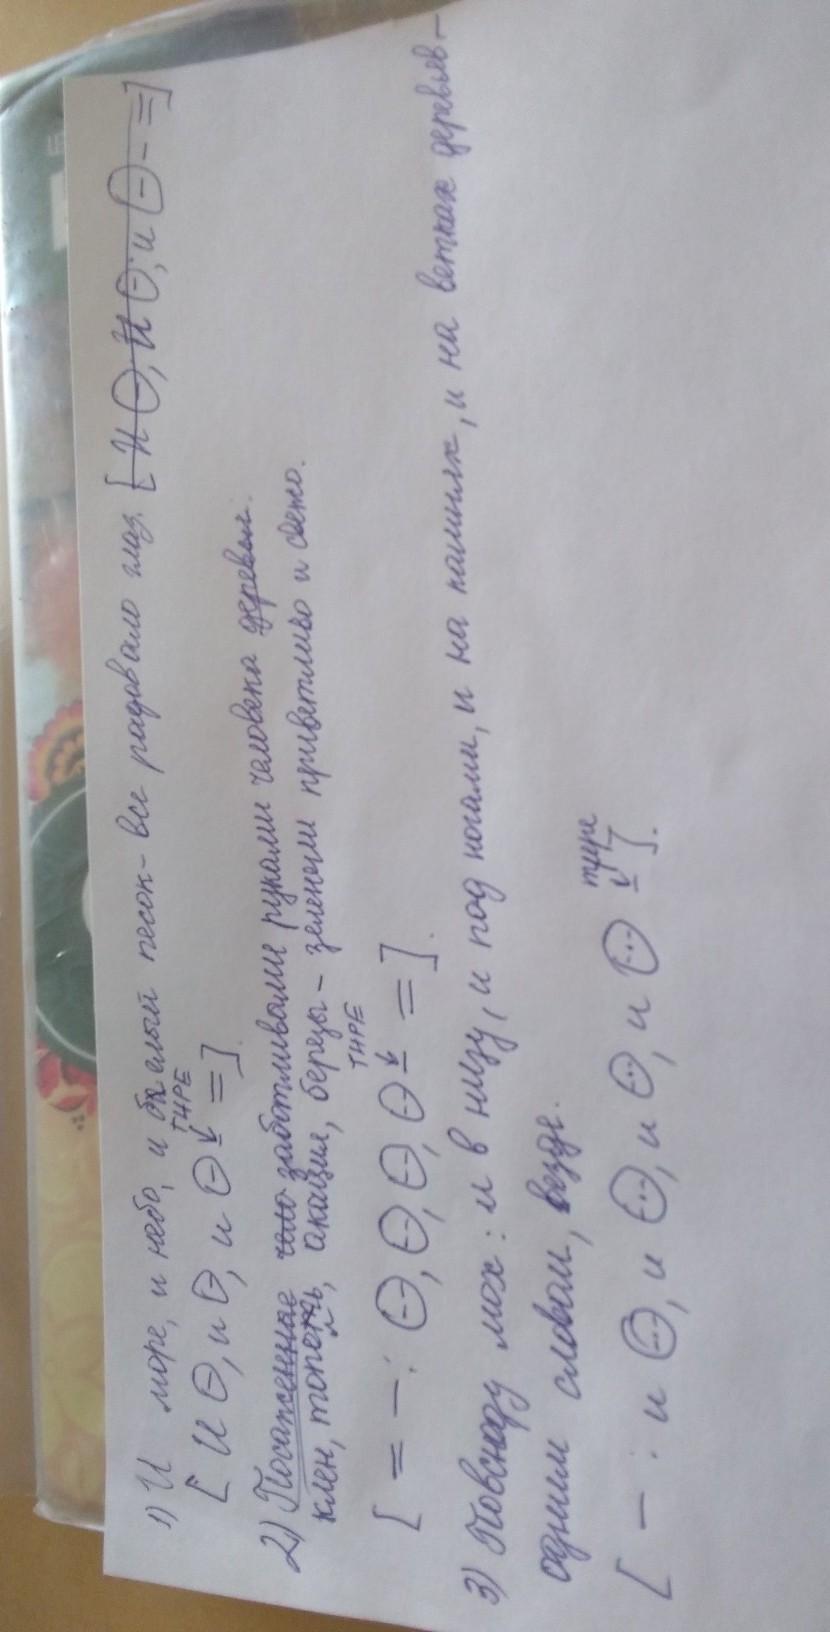 1) И море, и небо, и белый песок- все радовало глаз. [И ⊖, И ⊖, и ⊖ - =]
[И ⊖, и ⊖, и ⊖ - =].
ТИРЕ
2) Посаженные заботливыми руками человека деревья:
клен, тополь, акация, березы - зеленели приветливо и свежо.
ТИРЕ
[= - : ⊖, ⊖, ⊖, ⊖ - =].
3) Повсюду мох: и в низу, и под ногами, и на камнях, и на ветках деревьев-
одним словом, везде.
тире
[ - : и ⊖, и ⊖, и ⊖, и ⊖ - ].